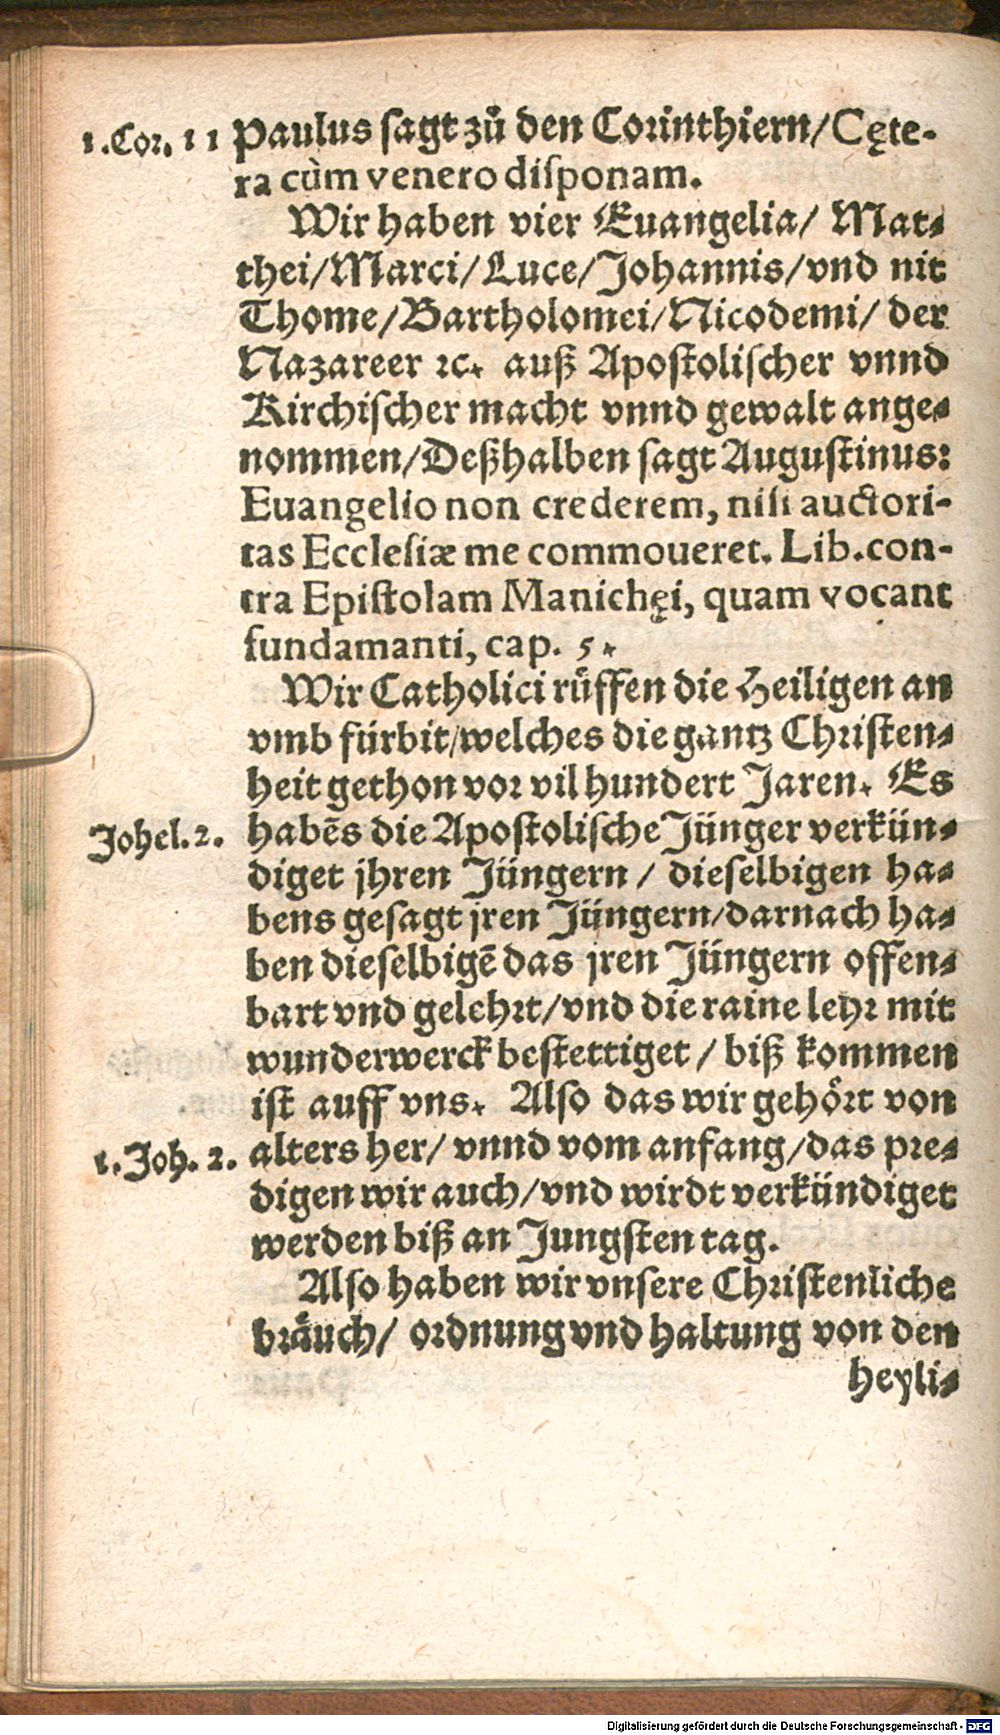 1.Cor. 11 Paulus sagt zů den Corinthiern/Cęte-
ra cùm venero disponam.
Wir haben vier Euangelia/ Mat-
thei/Marci/Luce/Johannis/vnd nit
Thome/Bartholomei/Nicodemi/ der
Nazareer ꝛc. auß Apostolischer vnnd
Kirchischer macht vnnd gewalt ange-
nommen/Deßhalben sagt Augustinus:
Euangelio non crederem, nisi auctori-
tas Ecclesiæ me commoueret. Lib.con-
tra Epistolam Manichęi, quam vocant
fundamanti, cap. 5.
Wir Catholici rüffen die Heiligen an
vmb fürbit/welches die gantz Christen-
heit gethon vor vil hundert Jaren. Es
Johel.2. habēs die Apostolische Jünger verkün-
diget jhren Jüngern / dieselbigen ha-
bens gesagt jren Jüngern/darnach ha-
ben dieselbigē das jren Jüngern offen-
bart vnd gelehrt/vnd die raine lehr mit
wunderwerck bestettiget / biß kommen
ist auff vns. Also das wir gehört von
1.Joh. 2. alters her/ vnnd vom anfang/das pre-
digen wir auch/vnd wirdt verkündiget
werden biß an Jungsten tag.
Also haben wir vnsere Christenliche
bräuch/ ordnung vnd haltung von den
heyli-
Digitalisierung gefördert durch die Deutsche Forschungsgemeinschaft - DFG